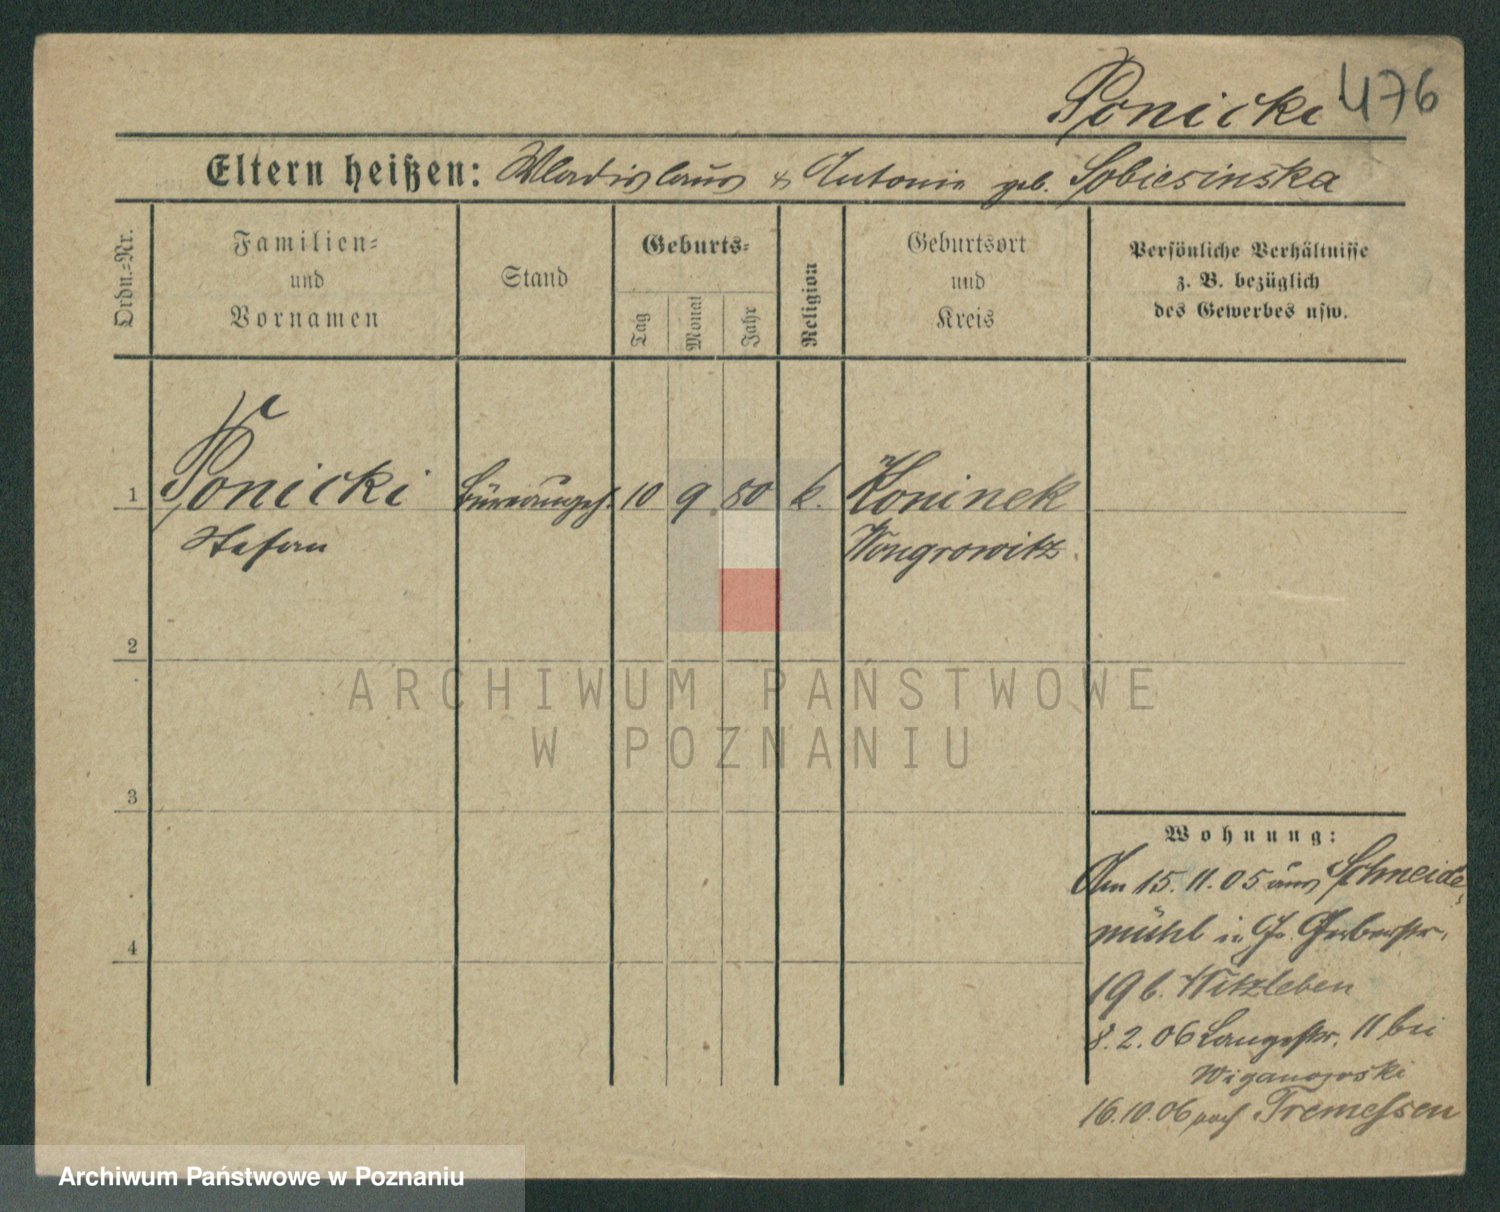 Ponicki 476
Eltern heißen: Wladislaus & Antonie geb. Sobiesinska
Ordn.=Nr.
Familien=
und
Vornamen
Stand
Geburts=
Tag
Monat
Jahr
Religion
Geburtsort
und
Kreis
Persönliche Verhältnisse
z. B. bezüglich
des Gewerbes usw.
1 Ponicki Büreaugeh. 10 9 80 k. Koninek
Stefan Wongrowitz
2
3
4
Wohnung:
Am 15.11.05 aus Schneide-
mühl in Gr. Gerberstr.
19 b. Witzleben
8.2.06 Langestr. 11 bei
Wiganowski
16.10.06 nach Tremessen
ARCHIWUM PAŃSTWOWE
W POZNANIU
Archiwum Państwowe w Poznaniu